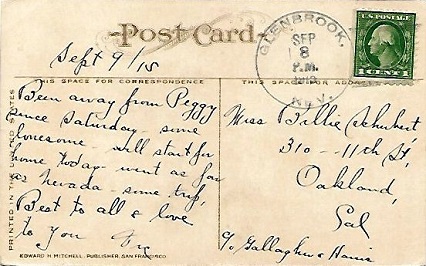 Post Card
Sept 9/15
THIS SPACE FOR CORRESPONDENCE
Been away from Peggy
since Saturday - some
lonesome - will start for
home today - went as far
as nevada - some trip,
Best to all & love
to You
PRINTED IN THE UNITED STATES
EDWARD H. MITCHELL, PUBLISHER, SAN FRANCISCO
GLENBROOK,
SEP
8
P.M.
NEV.
U.S. POSTAGE
1 CENT 1
THIS SPACE FOR ADDRESS
Miss Billie Schubert
310 - 11th St,
Oakland,
Cal
c/o Gallagher &